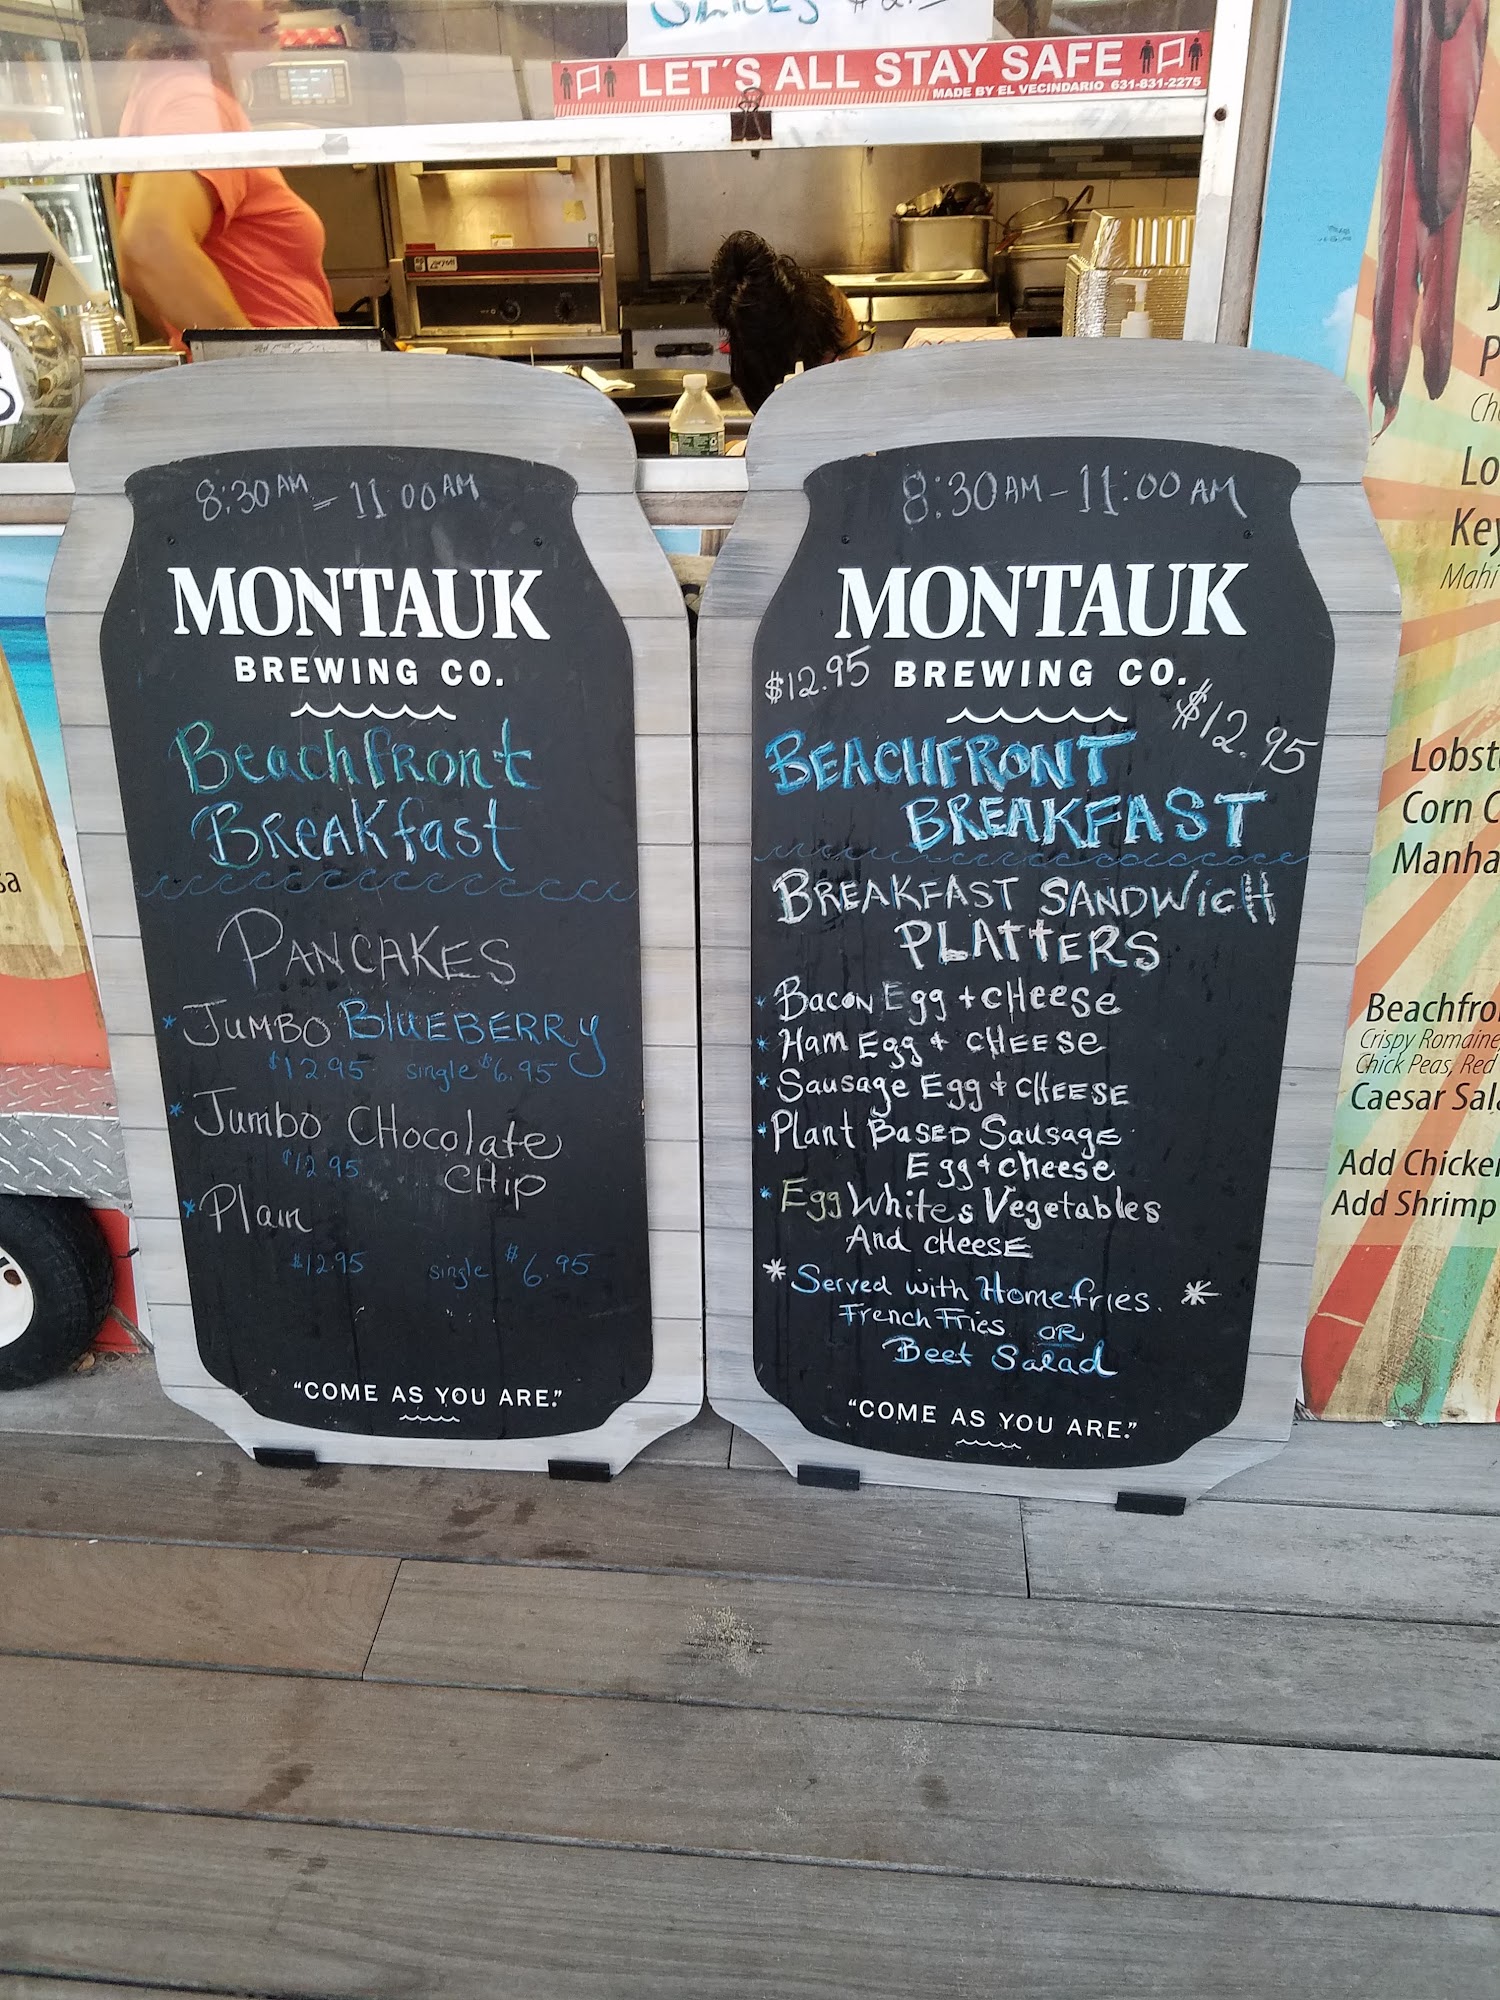 LET'S ALL STAY SAFE
MADE BY EL VECINDARIO 631-831-2275
8:30AM - 11:00AM
MONTAUK
BREWING CO.
Beachfront
Breakfast
PANCAKES
* JUMBO BLUEBERRY
$12.95 single $6.95
* Jumbo CHocolate
$12.95 CHip
* Plain
$12.95 single $6.95
"COME AS YOU ARE."
8:30AM - 11:00AM
MONTAUK
$12.95 BREWING CO. $12.95
BEACHFRONT
BREAKFAST
BREAKFAST SANDWicH
PLATTERS
* Bacon Egg + cHeese
* Ham Egg + CHEESe
* Sausage Egg + CHEESE
* Plant BASED Sausage
Egg + cheese
* Egg Whites Vegetables
And cHeesE
* Served with Homefries. *
French Fries OR
Beet Salad
"COME AS YOU ARE."
Lobst
Corn
Manha
Beachfro
Crispy Romaine
Chick Peas, Red
Caesar Sal
Add Chicke
Add Shrimp
Lo
Key
Mahi